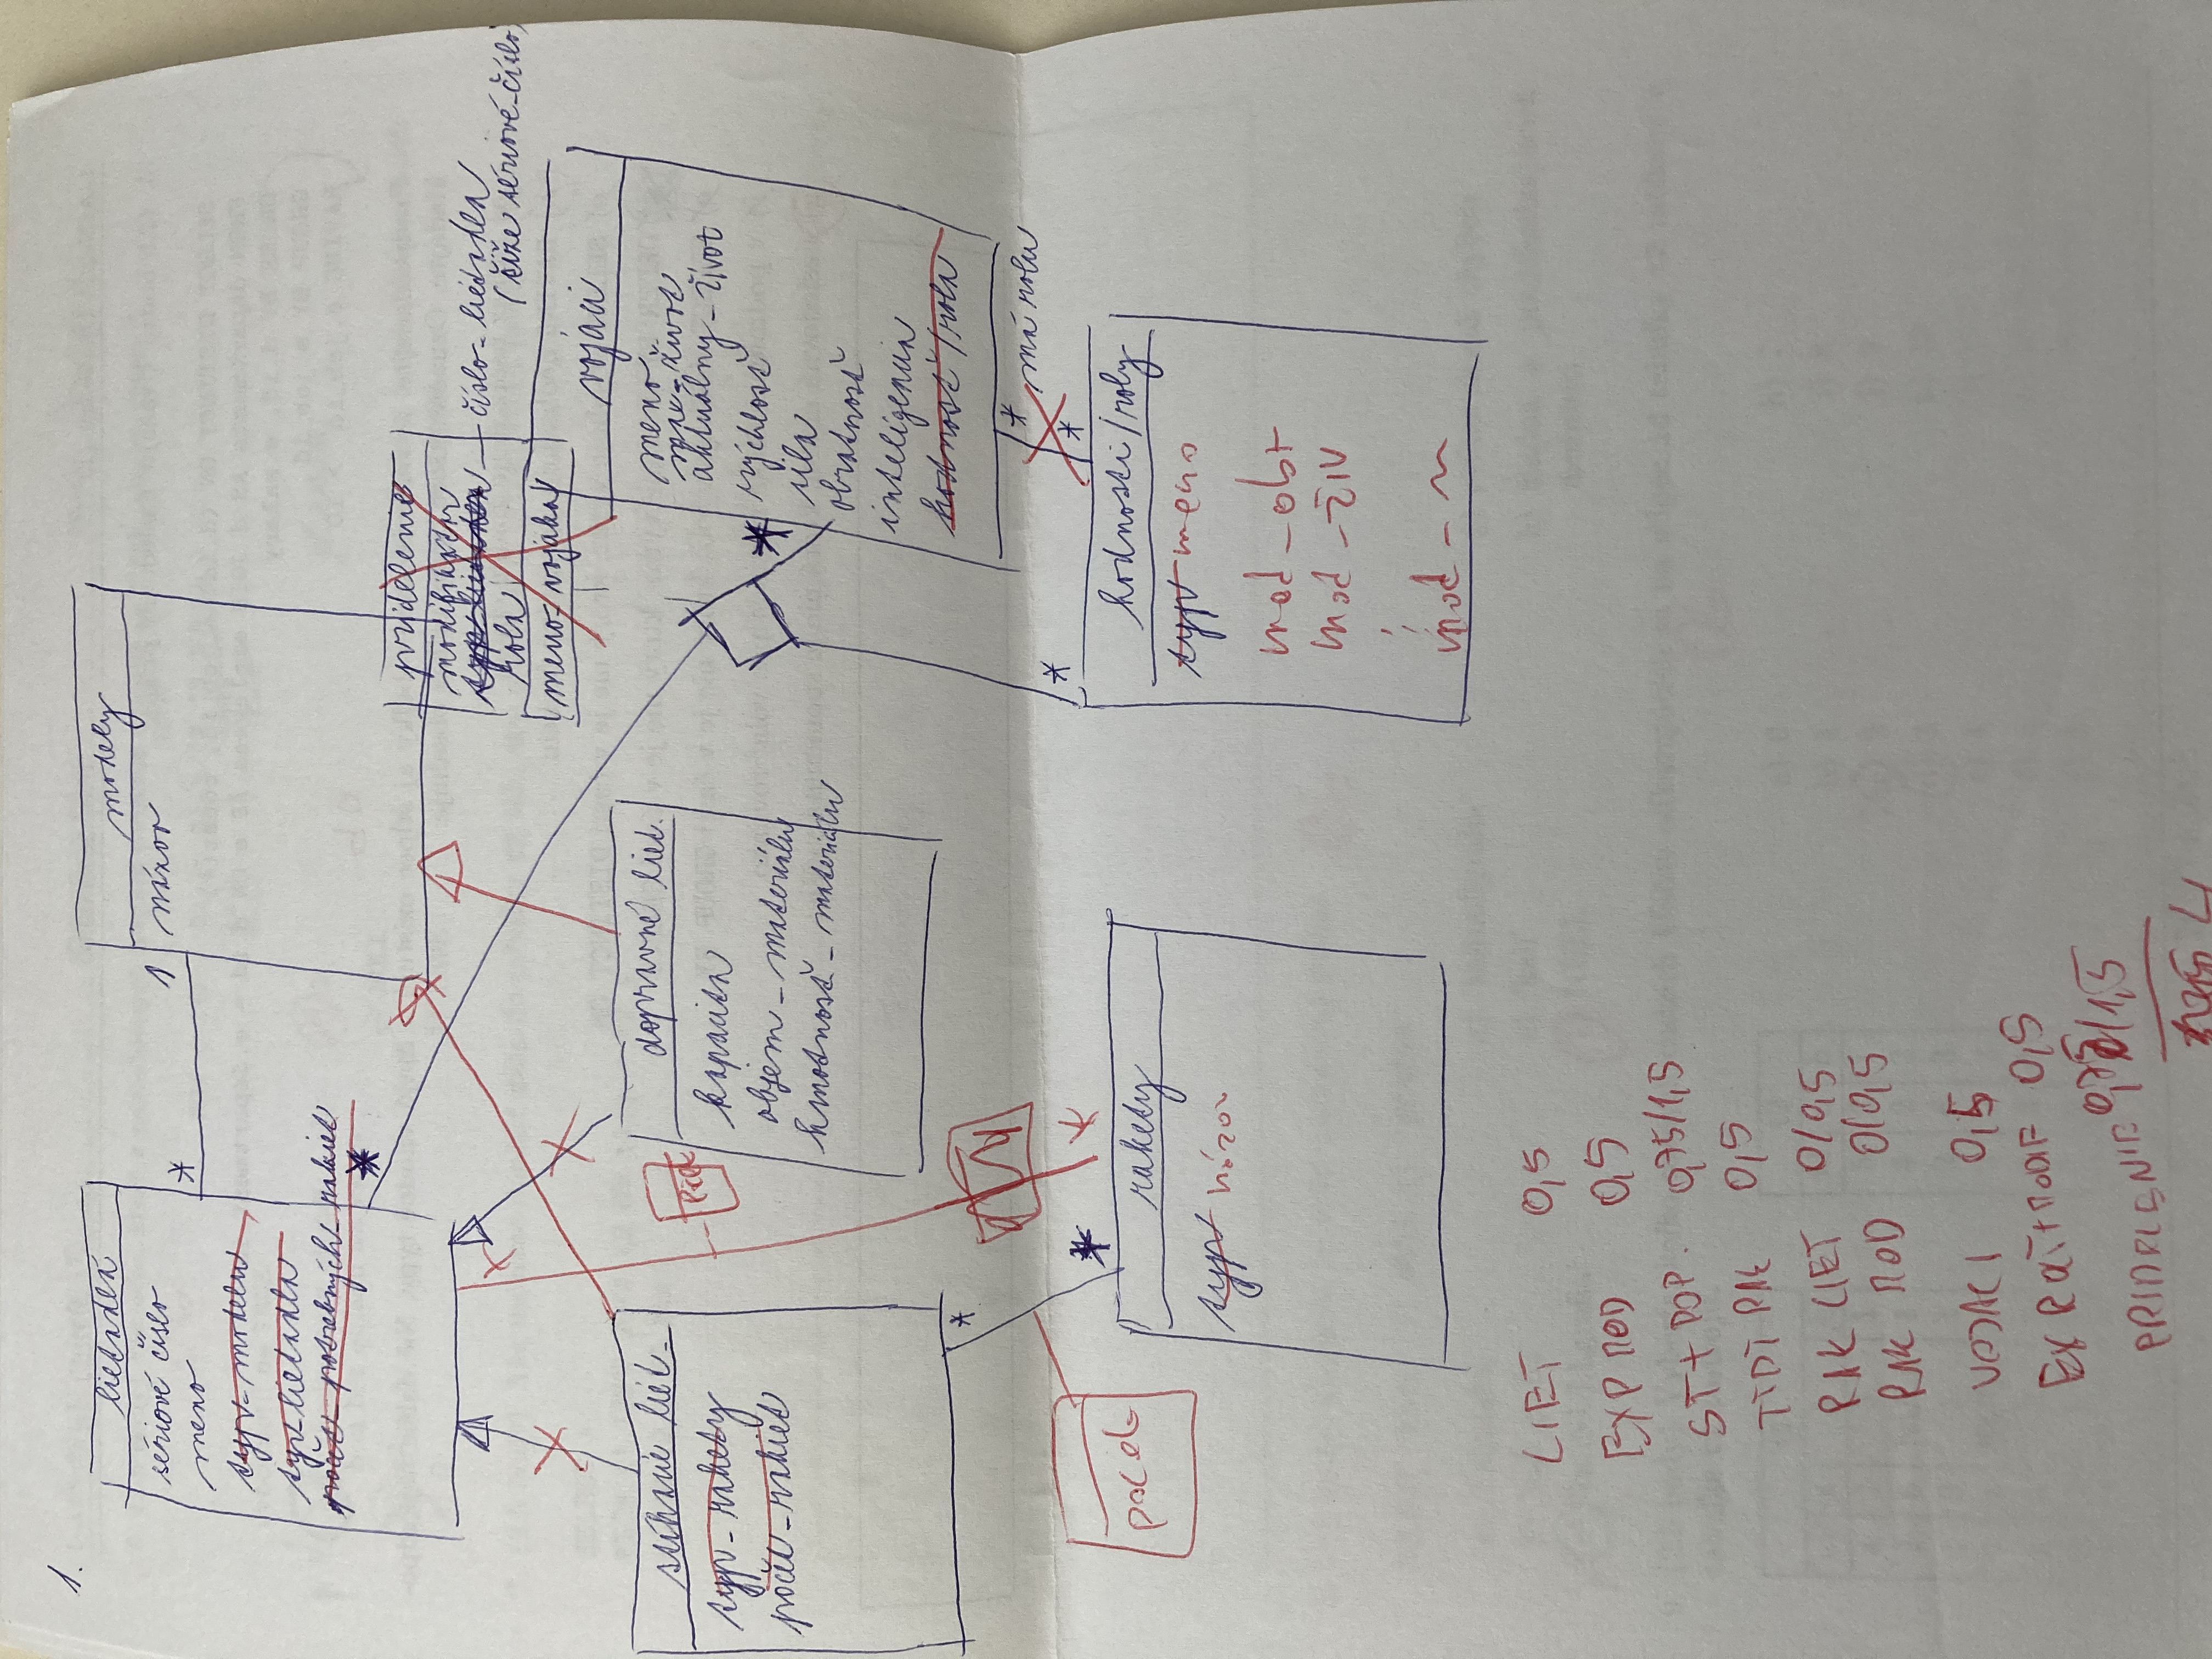 1.
lietadlá
sériové číslo
meno
typ_modelu
typ_lietadla
počet_potrebných_rakiet
*
1
*
modely
názov
pridelenie
modifikátor
typ_lietadla — číslo_lietadla
rola (čiže sériové_číslo)
meno_vojaka
stíhacie liet.
typ_rakety
počet_rakiet
*
dopravné liet.
kapacita
objem_materiálu
hmotnosť_materiálu
vojaci
meno
max_život
aktuálny_život
rýchlosť
sila
obratnosť
inteligencia
hodnosť/rola
*
* má rolu
*
*
počet
*
*
rakety
typ názov
hodnosti/roly
typ meno
mod_obr
mod_živ
mod_
LIET 0,5
EXP MOD 0,5
ST + DOP. 0,75/1,5
TIDI RAK 0,5
RAK LIET 0/0,5
RAK MOD 0/0,5
VOJACI 0,5
0,5
PRIDELENIE 0,75/1,5
4